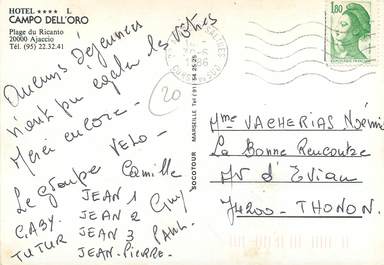 HOTEL ★★★★ L
CAMPO DELL'ORO
Plage du Ricanto
20000 Ajaccio
Tél. (95) 22.32.41
Aucuns déjeuners
n'ont pu égaler les vôtres
Merci encore.
Le groupe VELO
Camille
JEAN 1
GABY. JEAN 2 Guy
TUTUR JEAN 3 PAUL
JEAN-PIERRE.
20
SOCOTOUR MARSEILLE Tel (91) 54.25.25
1,80
Mme VACHERIAS Noémie
La Bonne Rencontre
AV d'Evian
74200 - THONON.